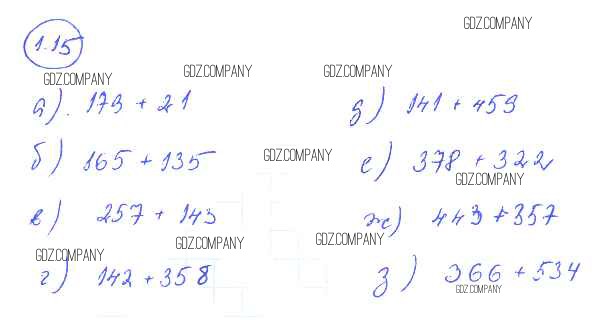 1.15
GDZ.COMPANY
GDZ.COMPANY
GDZ.COMPANY
GDZ.COMPANY
а) 179 + 21
б) 165 + 135
в) 257 + 143
г) 142 + 358
д) 141 + 459
е) 378 + 322
ж) 443 + 357
з) 366 + 534
GDZ.COMPANY
GDZ.COMPANY
GDZ.COMPANY
GDZ.COMPANY
GDZ.COMPANY
GDZ.COMPANY